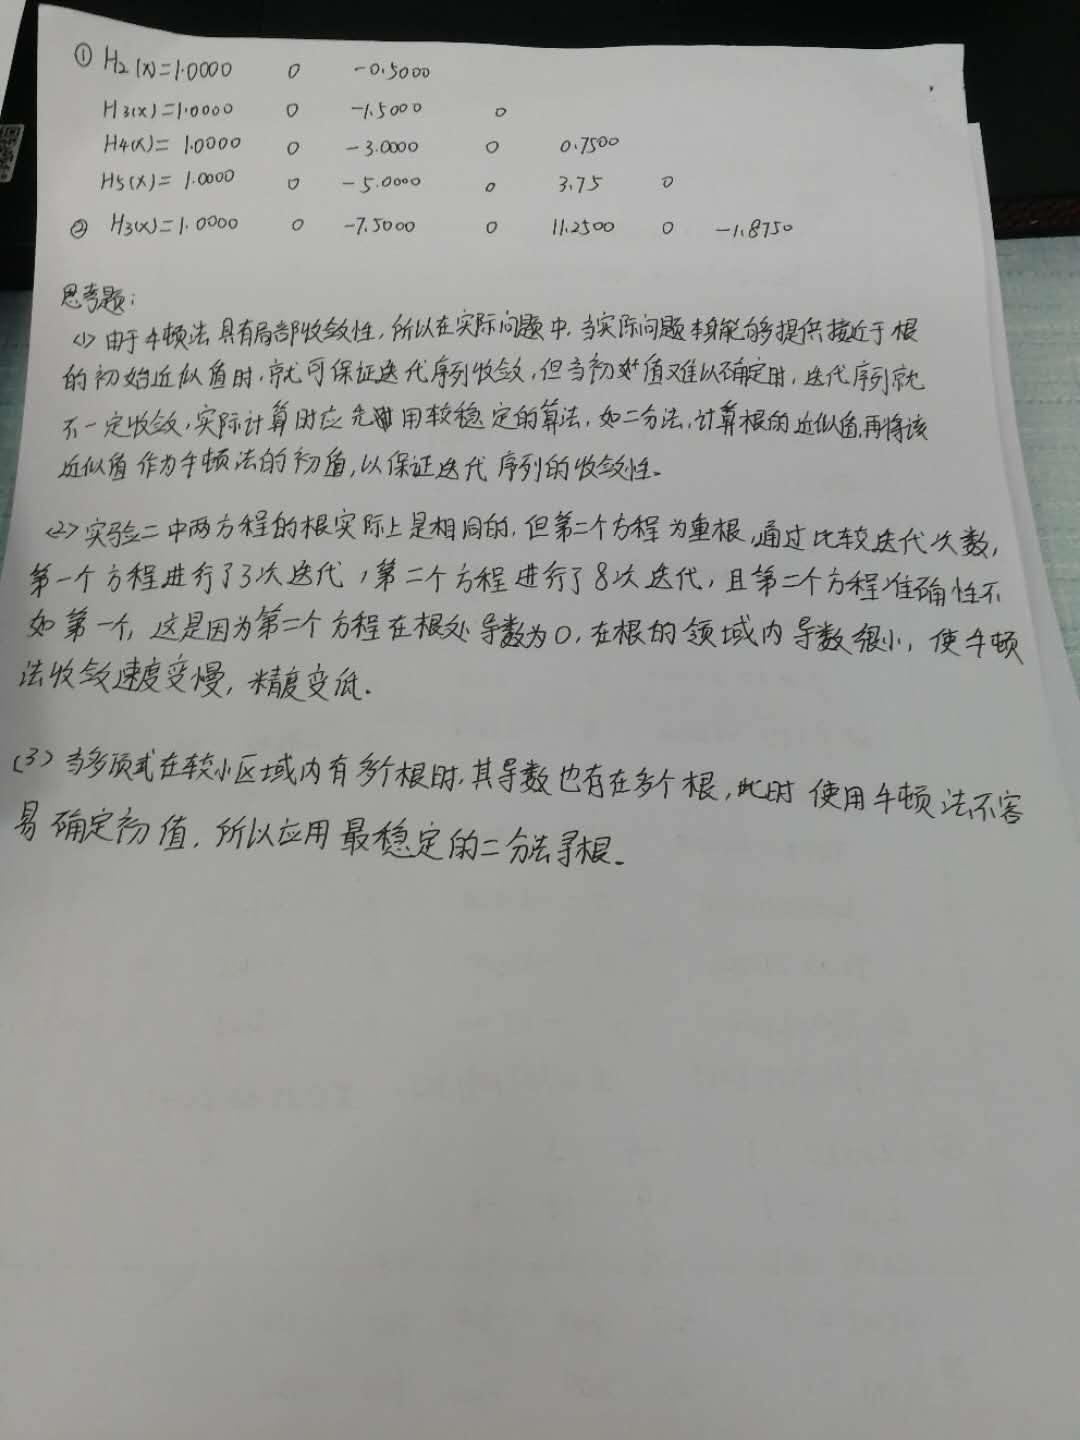 ① H2(x)=1.0000 0 -0.5000
H3(x)=1.0000 0 -1.5000 0
H4(x)= 1.0000 0 -3.0000 0 0.7500
H5(x)= 1.0000 0 -5.0000 0 3.75 0
② H3(x)=1.0000 0 -7.5000 0 11.2500 0 -1.8750
思考题:
<1> 由于牛顿法具有局部收敛性,所以在实际问题中,当实际问题本身能够多提供接近于根
的初始近似值时,就可保证迭代序列收敛,但当初始值又难以确定时,迭代序列就
不一定收敛,实际计算时应先用较稳定的算法,如二分法,计算根的近似值,再将该
近似值作为牛顿法的初值,以保证迭代序列的收敛性。
<2> 实验二中两方程的根实际上是相同的,但第二个方程为重根,通过比较迭代次数,
第一个方程进行了3次迭代,第二个方程进行了8次迭代,且第二个方程准确性不
如第一个,这是因为第二个方程在根处导数为0,在根的领域内导数很小,使牛顿
法收敛速度变慢,精度变低.
(3) 当多项式在较小区域内有多个根时,其导数也有在多个根,此时使用牛顿法不容
易确定初值,所以应用最稳定的二分法寻根。